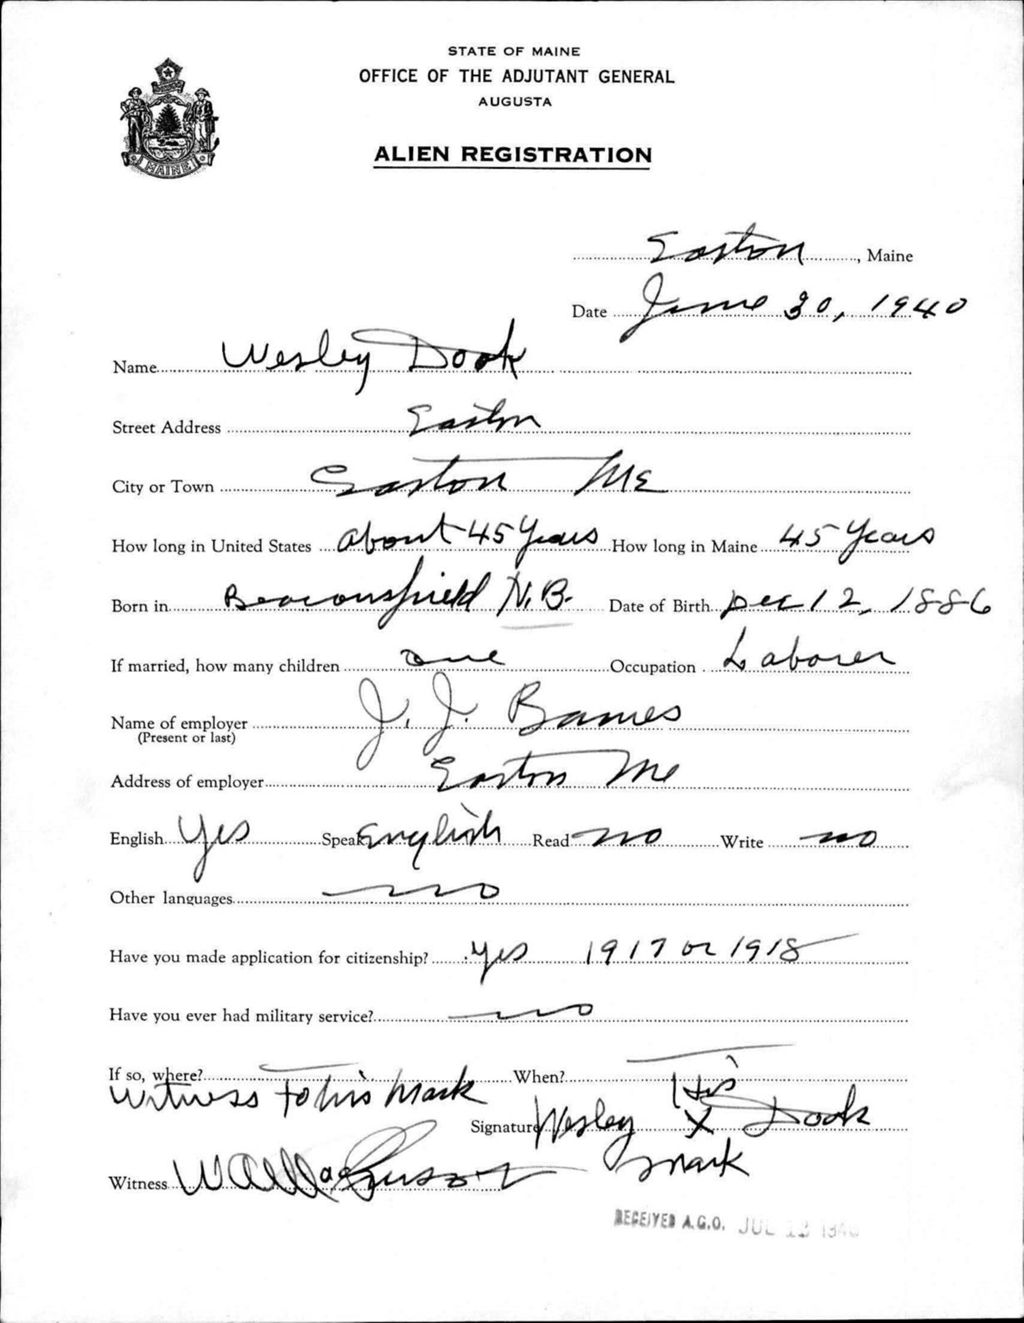 STATE OF MAINE
OFFICE OF THE ADJUTANT GENERAL
AUGUSTA
ALIEN REGISTRATION
MAINE
Easton, Maine
Date June 30, 1940
Name Wesley Dook
Street Address Easton
City or Town Easton Me
How long in United States About 45 Years How long in Maine 45 Years
Born in Beaconsfield N.B. Date of Birth Dec 12, 1886
If married, how many children one Occupation Laborer
Name of employer J. J. Barnes
(Present or last)
Address of employer Easton Me
English Yes Speak English Read no Write no
Other languages no
Have you made application for citizenship? yes 1917 or 1918
Have you ever had military service? no
If so, where? When?
Witness to his mark His
Signature Wesley X Dook
mark
Witness
RECEIVED A.G.O. JUL 13 1940